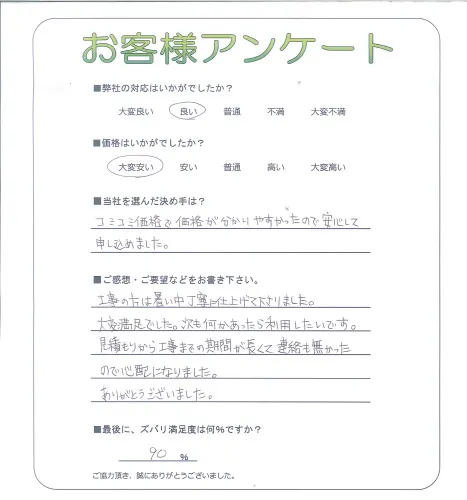 お客様アンケート
■弊社の対応はいかがでしたか？
大変良い 良い 普通 不満 大変不満
■価格はいかがでしたか？
大変安い 安い 普通 高い 大変高い
■当社を選んだ決め手は？
コミコミ価格で価格が分かりやすかったので安心して
申し込めました。
■ご感想・ご要望などをお書き下さい。
工事の方は暑い中丁寧に仕上げて下さりました。
大変満足でした。次も何かあったら利用したいです。
見積もりから工事までの期間が長くて連絡も無かった
ので心配になりました。
ありがとうございました。
■最後に、ズバリ満足度は何％ですか？
90 %
ご協力頂き、誠にありがとうございました。